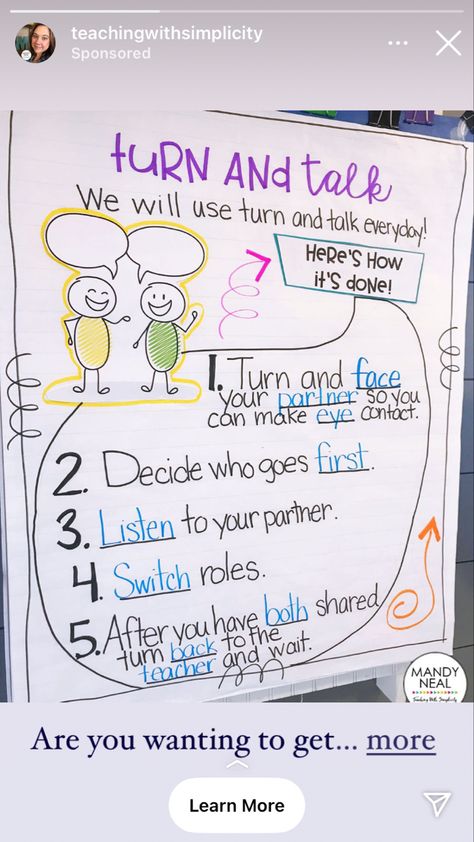 teachingwithsimplicity
Sponsored
turn and talk
We will use turn and talk everyday!
Here's how
it's done!
1. Turn and face
your partner so you
can make eye contact.
2. Decide who goes first.
3. Listen to your partner.
4. Switch roles.
5. After you have both shared
turn back to the
teacher and wait.
MANDY
NEAL
Teaching With Simplicity
Are you wanting to get... more
Learn More